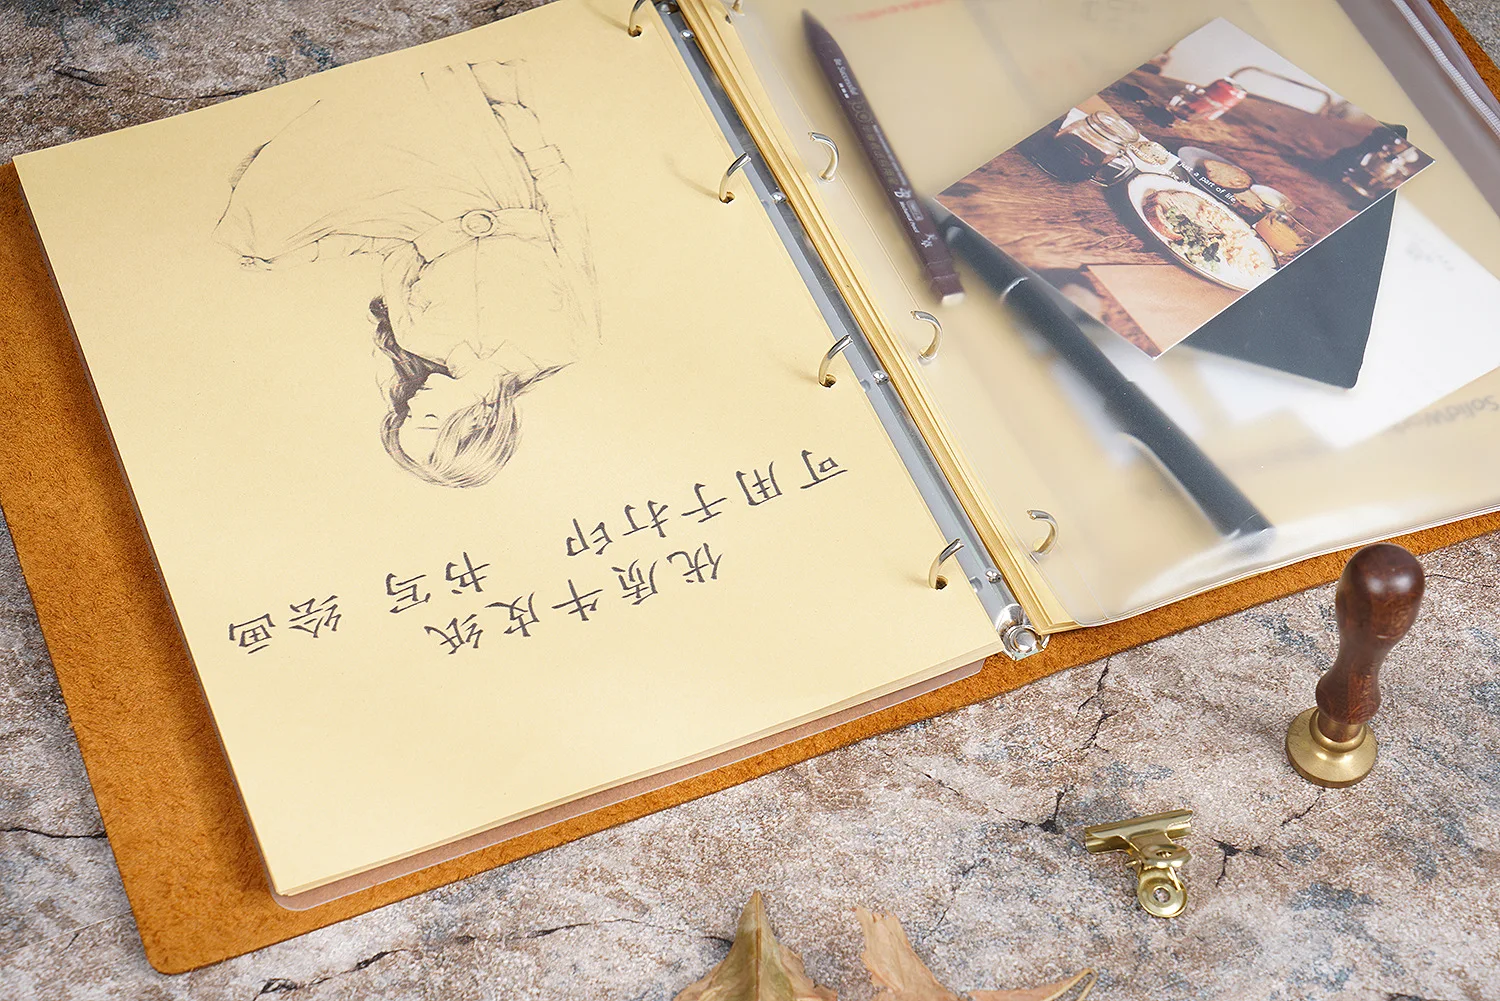 优质牛皮纸
可用于打印 书写 绘画
Just a part of life.
Be Successful